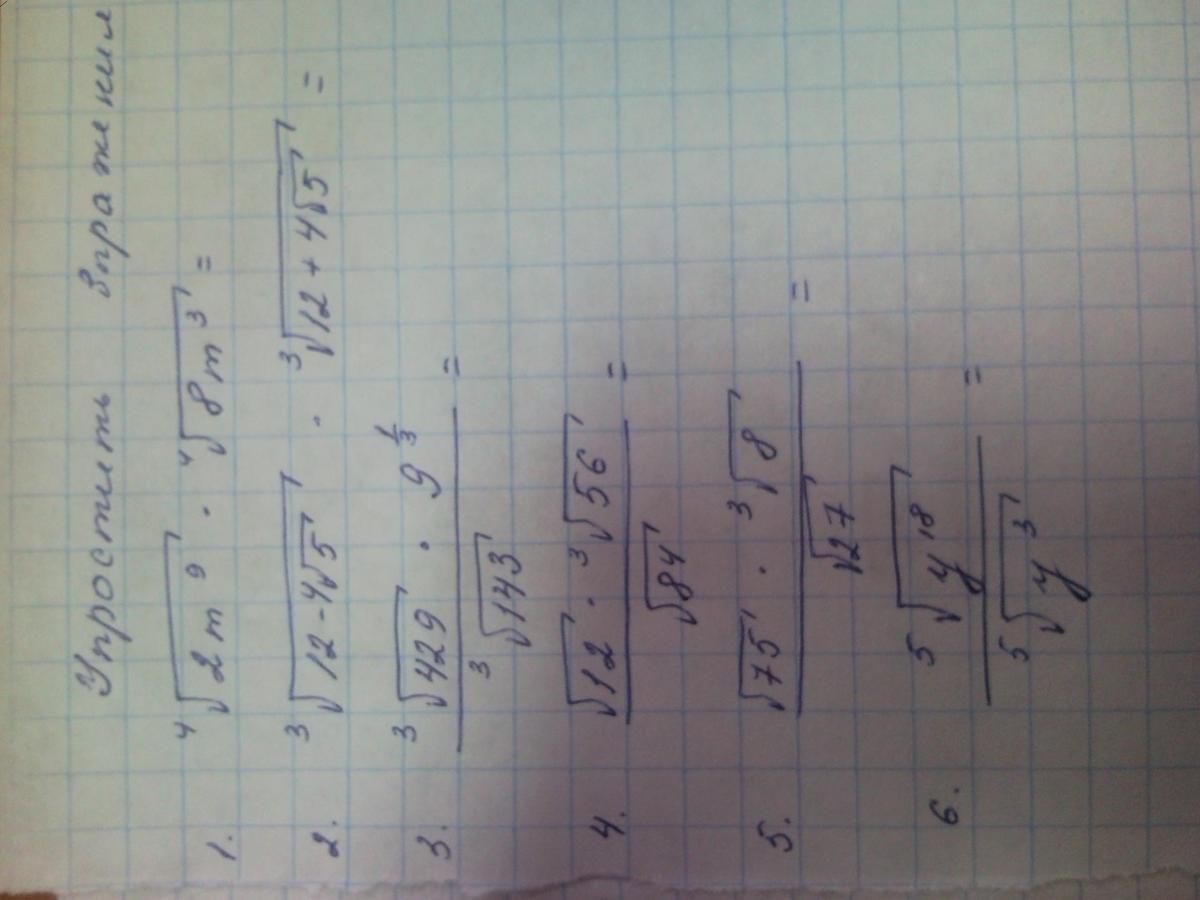 Упростить выражения
1. ⁴√(2m⁹) · ⁴√(8m³) =
2. ³√(12-4√5) · ³√(12+4√5) =
3. (³√429 · 9^(1/3)) / ³√143 =
4. (√12 · ³√56) / √84 =
5. (√75 · ³√8) / √27 =
6. ⁵√(y¹⁸) / ⁵√(y³) =